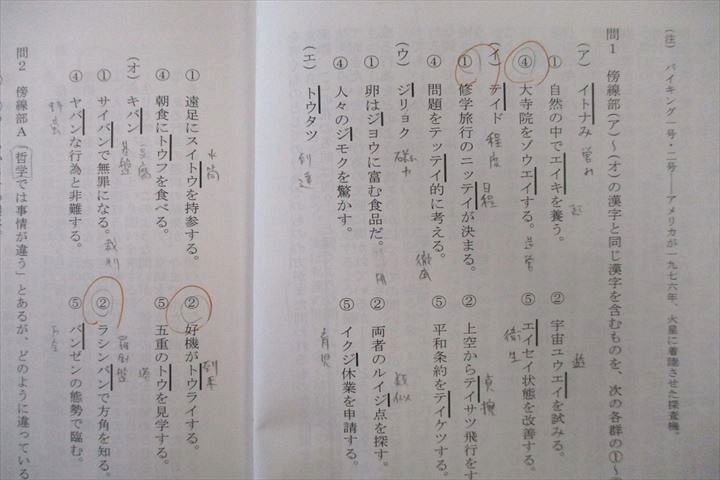 (注) バイキング一号・二号――アメリカが一九七六年、火星に着陸させた探査機。
問1 傍線部(ア)～(オ)の漢字と同じ漢字を含むものを、次の各群の①～
(ア) イトナみ 営み
① 自然の中でエイキを養う。
② 宇宙ユウエイを試みる。
④ 大寺院をゾウエイする。 造営
⑤ エイセイ状態を改善する。 衛生
(イ) テイド 程度
① 修学旅行のニッテイが決まる。 日程
② 上空からテイサツ飛行をす
④ 問題をテッテイ的に考える。 徹底
⑤ 平和条約をテイケツする。
(ウ) ジリョク 磁力
① 卵はジヨウに富む食品だ。
② 両者のルイジ点を探す。 類似
④ 人々のジモクを驚かす。
⑤ イクジ休業を申請する。 育児
(エ) トウタツ 到達
① 遠足にスイトウを持参する。 水筒
② 好機がトウライする。 到来
④ 朝食にトウフを食べる。 豆腐
⑤ 五重のトウを見学する。 塔
(オ) キバン 基盤
① サイバンで無罪になる。 裁判
② ラシンバンで方角を知る。 羅針盤
④ ヤバンな行為と非難する。 野蛮
⑤ バンゼンの態勢で臨む。 万全
問2 傍線部A「哲学では事情が違う」とあるが、どのように違っている